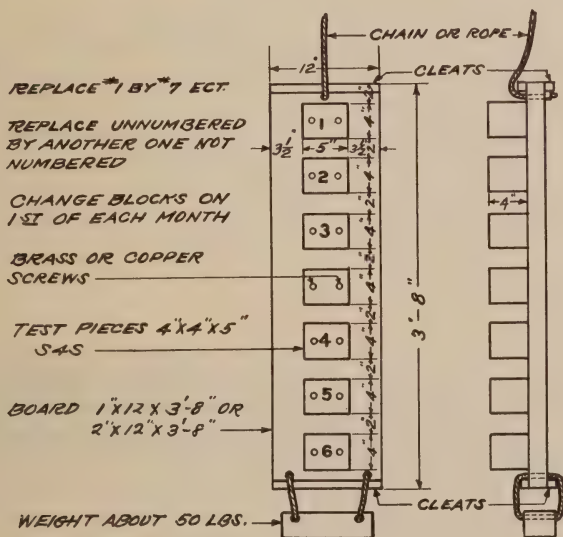 CHAIN OR ROPE
12"
CLEATS
REPLACE #1 BY #7 ECT.
REPLACE UNNUMBERED
BY ANOTHER ONE NOT
NUMBERED
CHANGE BLOCKS ON
1ST OF EACH MONTH
BRASS OR COPPER
SCREWS
TEST PIECES 4"X4"X5"
S4S
BOARD 1"X12 X 3'-8" OR
2"X12"X3'-8"
WEIGHT ABOUT 50 LBS.
CLEATS
2"
1
4"
3 1/2"
5"
3 1/2"
2"
2
4"
2"
3
4"
2"
4"
2"
4
4"
2"
5
4"
2"
6
4"
3'-8"
4"